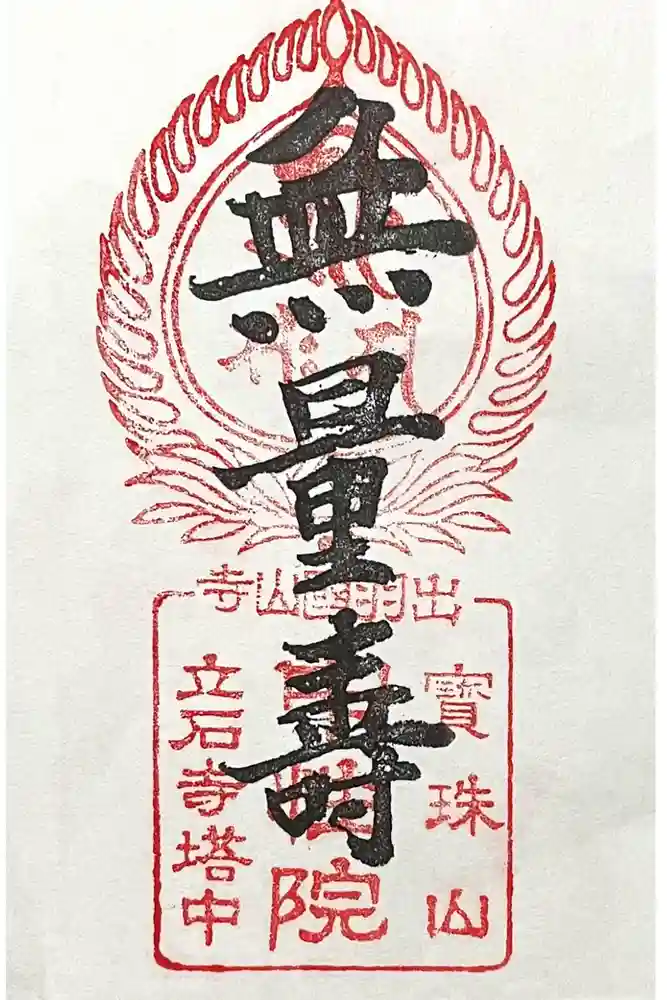 無量壽
出羽國山寺
寶珠山
中性院
立石寺塔中